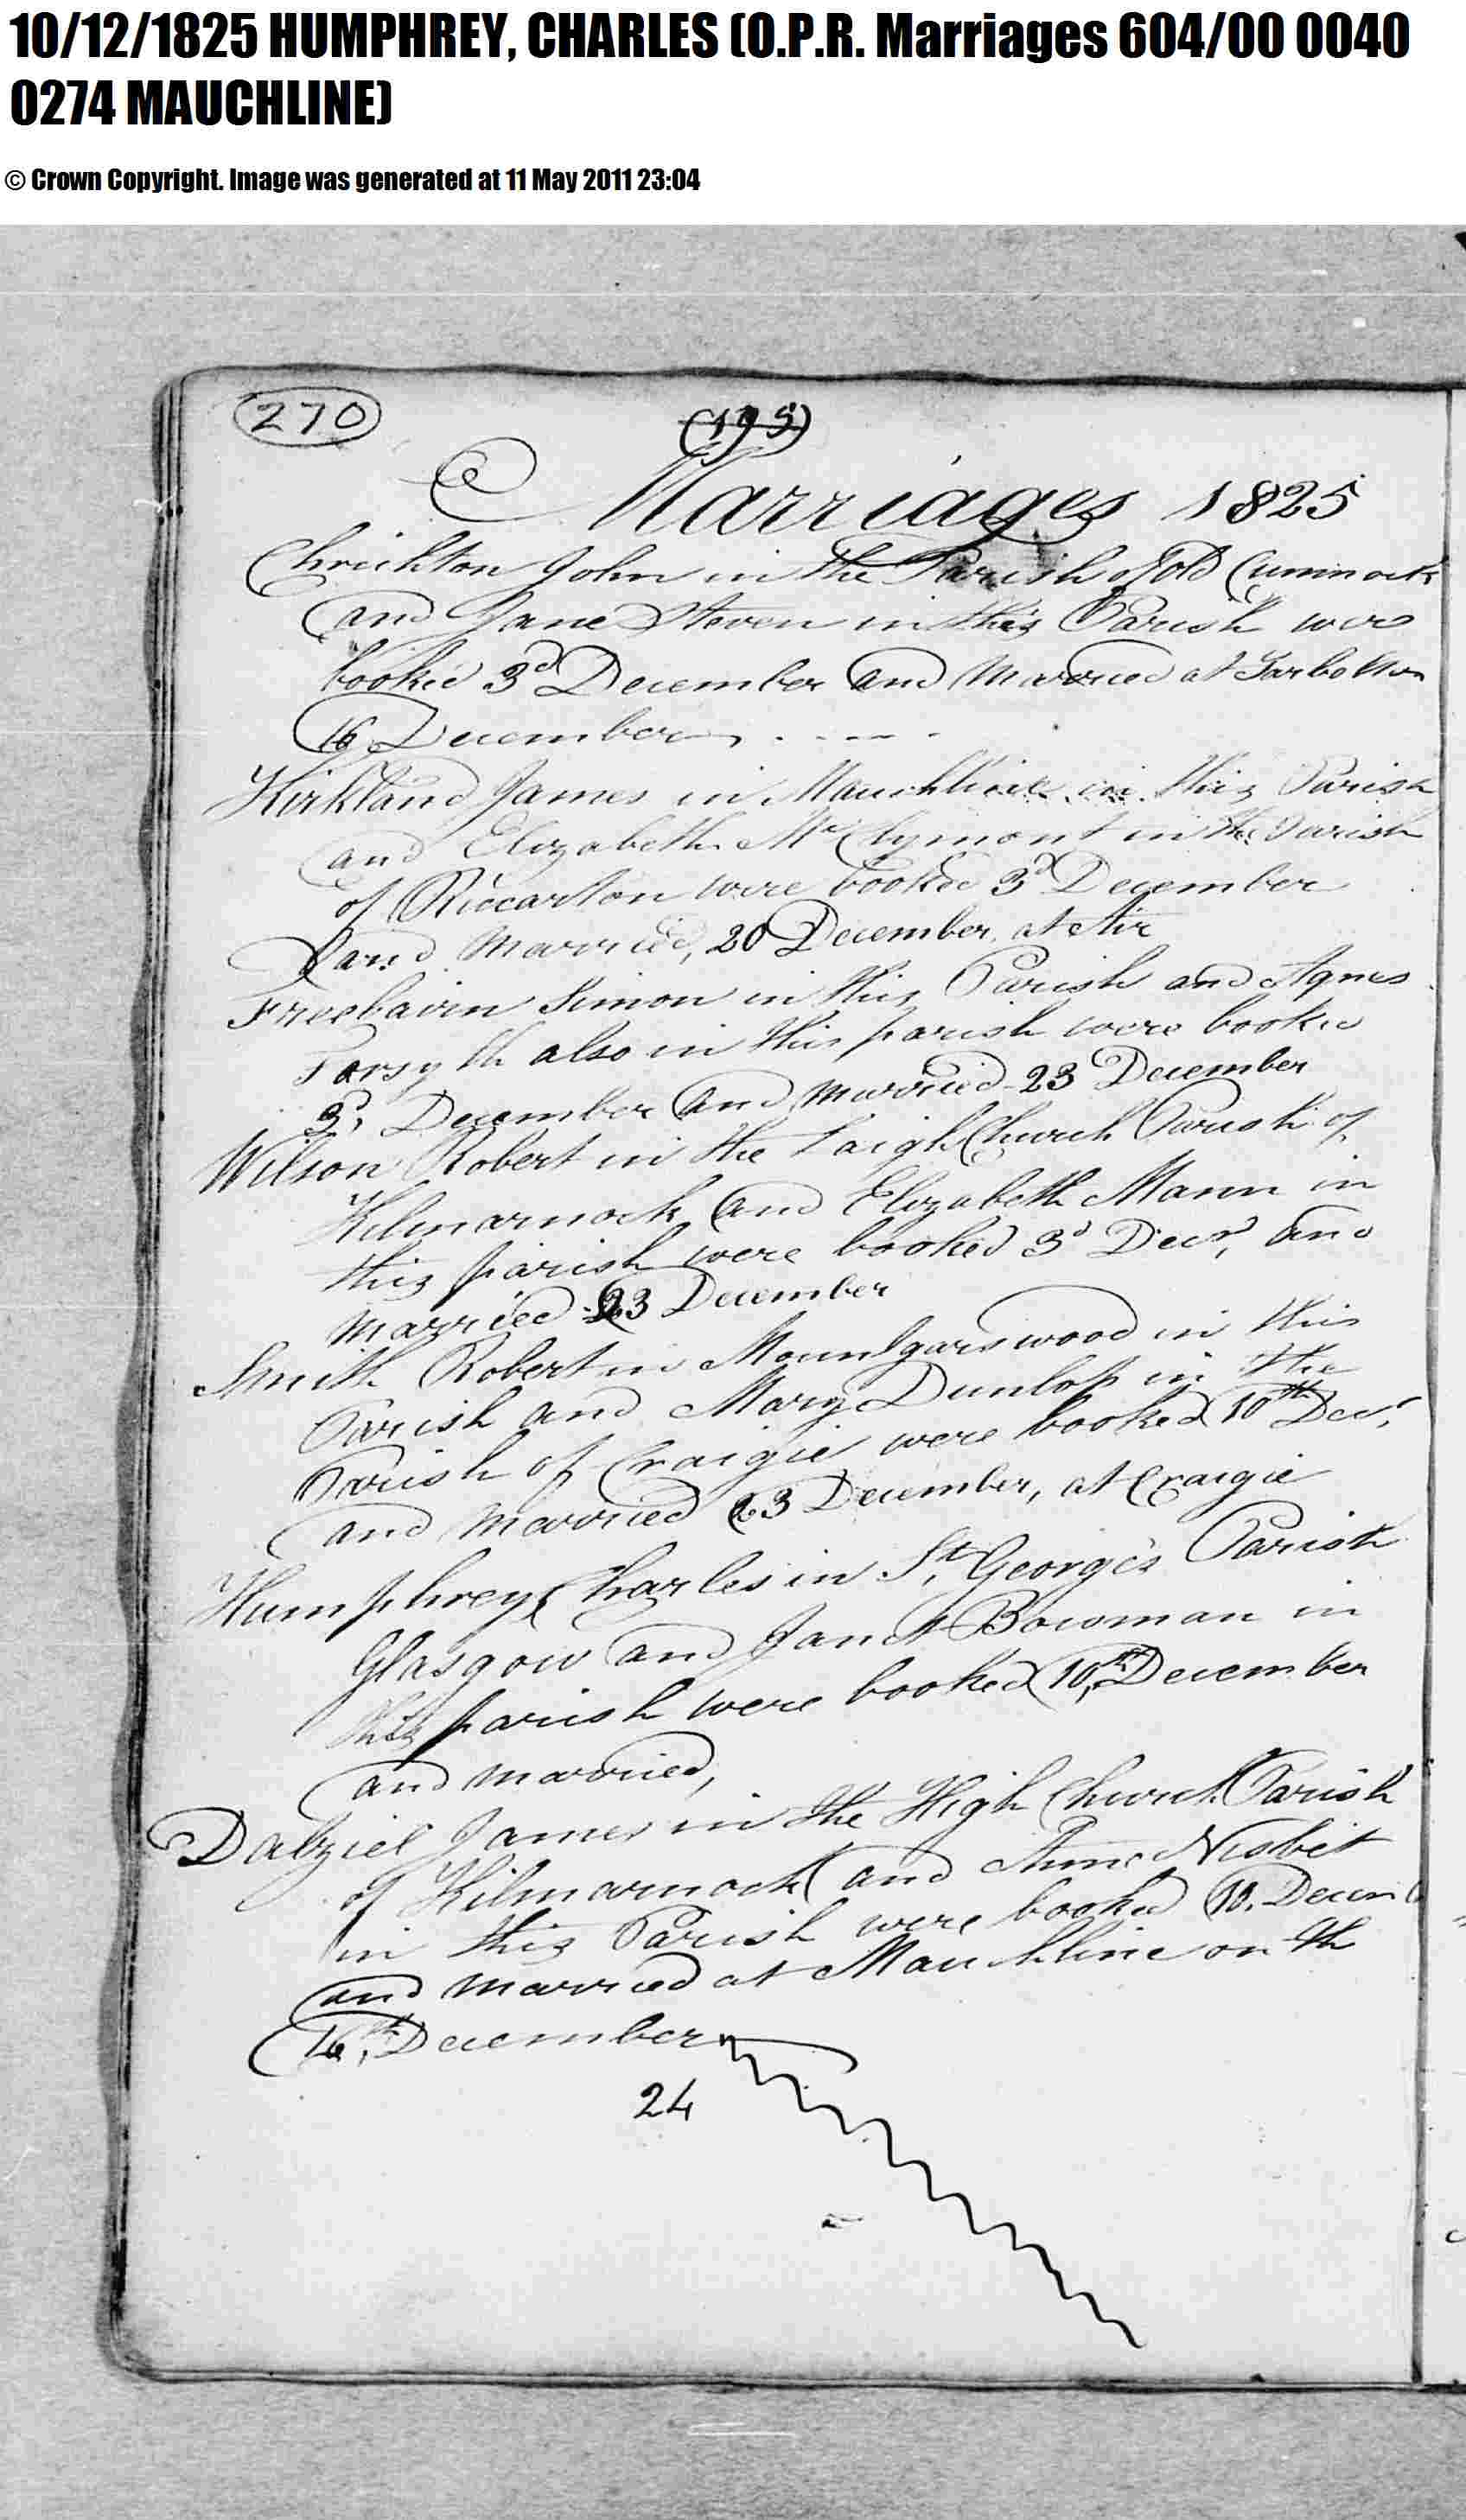 10/12/1825 HUMPHREY, CHARLES (O.P.R. Marriages 604/00 0040
0274 MAUCHLINE)
© Crown Copyright. Image was generated at 11 May 2011 23:04
270
(195)
Marriages 1825
Chrichton John in the Parish of Old Cumnock
and Jane Steven in this Parish were
booked 3d December and Married at Tarbolton
16 December
Kirkland James in Mauchline in this Parish
and Elizabeth McClymont in the Parish
of Riccarton were booked 3d December
and Married, 20 December at Air
Freebairn Simon in this Parish and Agnes
Forsyth also in this parish were booked
3d, December and Married 23 December
Wilson Robert in the Laigh Church Parish of
Kilmarnock and Elizabeth Mann in
this parish were booked 3d Decr, and
Married 23 December
Smith Robert in Mountgarswood in this
Parish and Mary Dunlop in the
Parish of Craigie were booked 10th Decr,
and Married 23 December, at Craigie
Humphrey Charles in St, George's Parish
Glasgow and Janet Bowman in
this parish were booked 10,th December
and married,
Dalziel James in the High Church Parish
of Kilmarnock and Nisbet
in this Parish were booked 10, Decem
and Married at Mauchline on th
16,th December
24